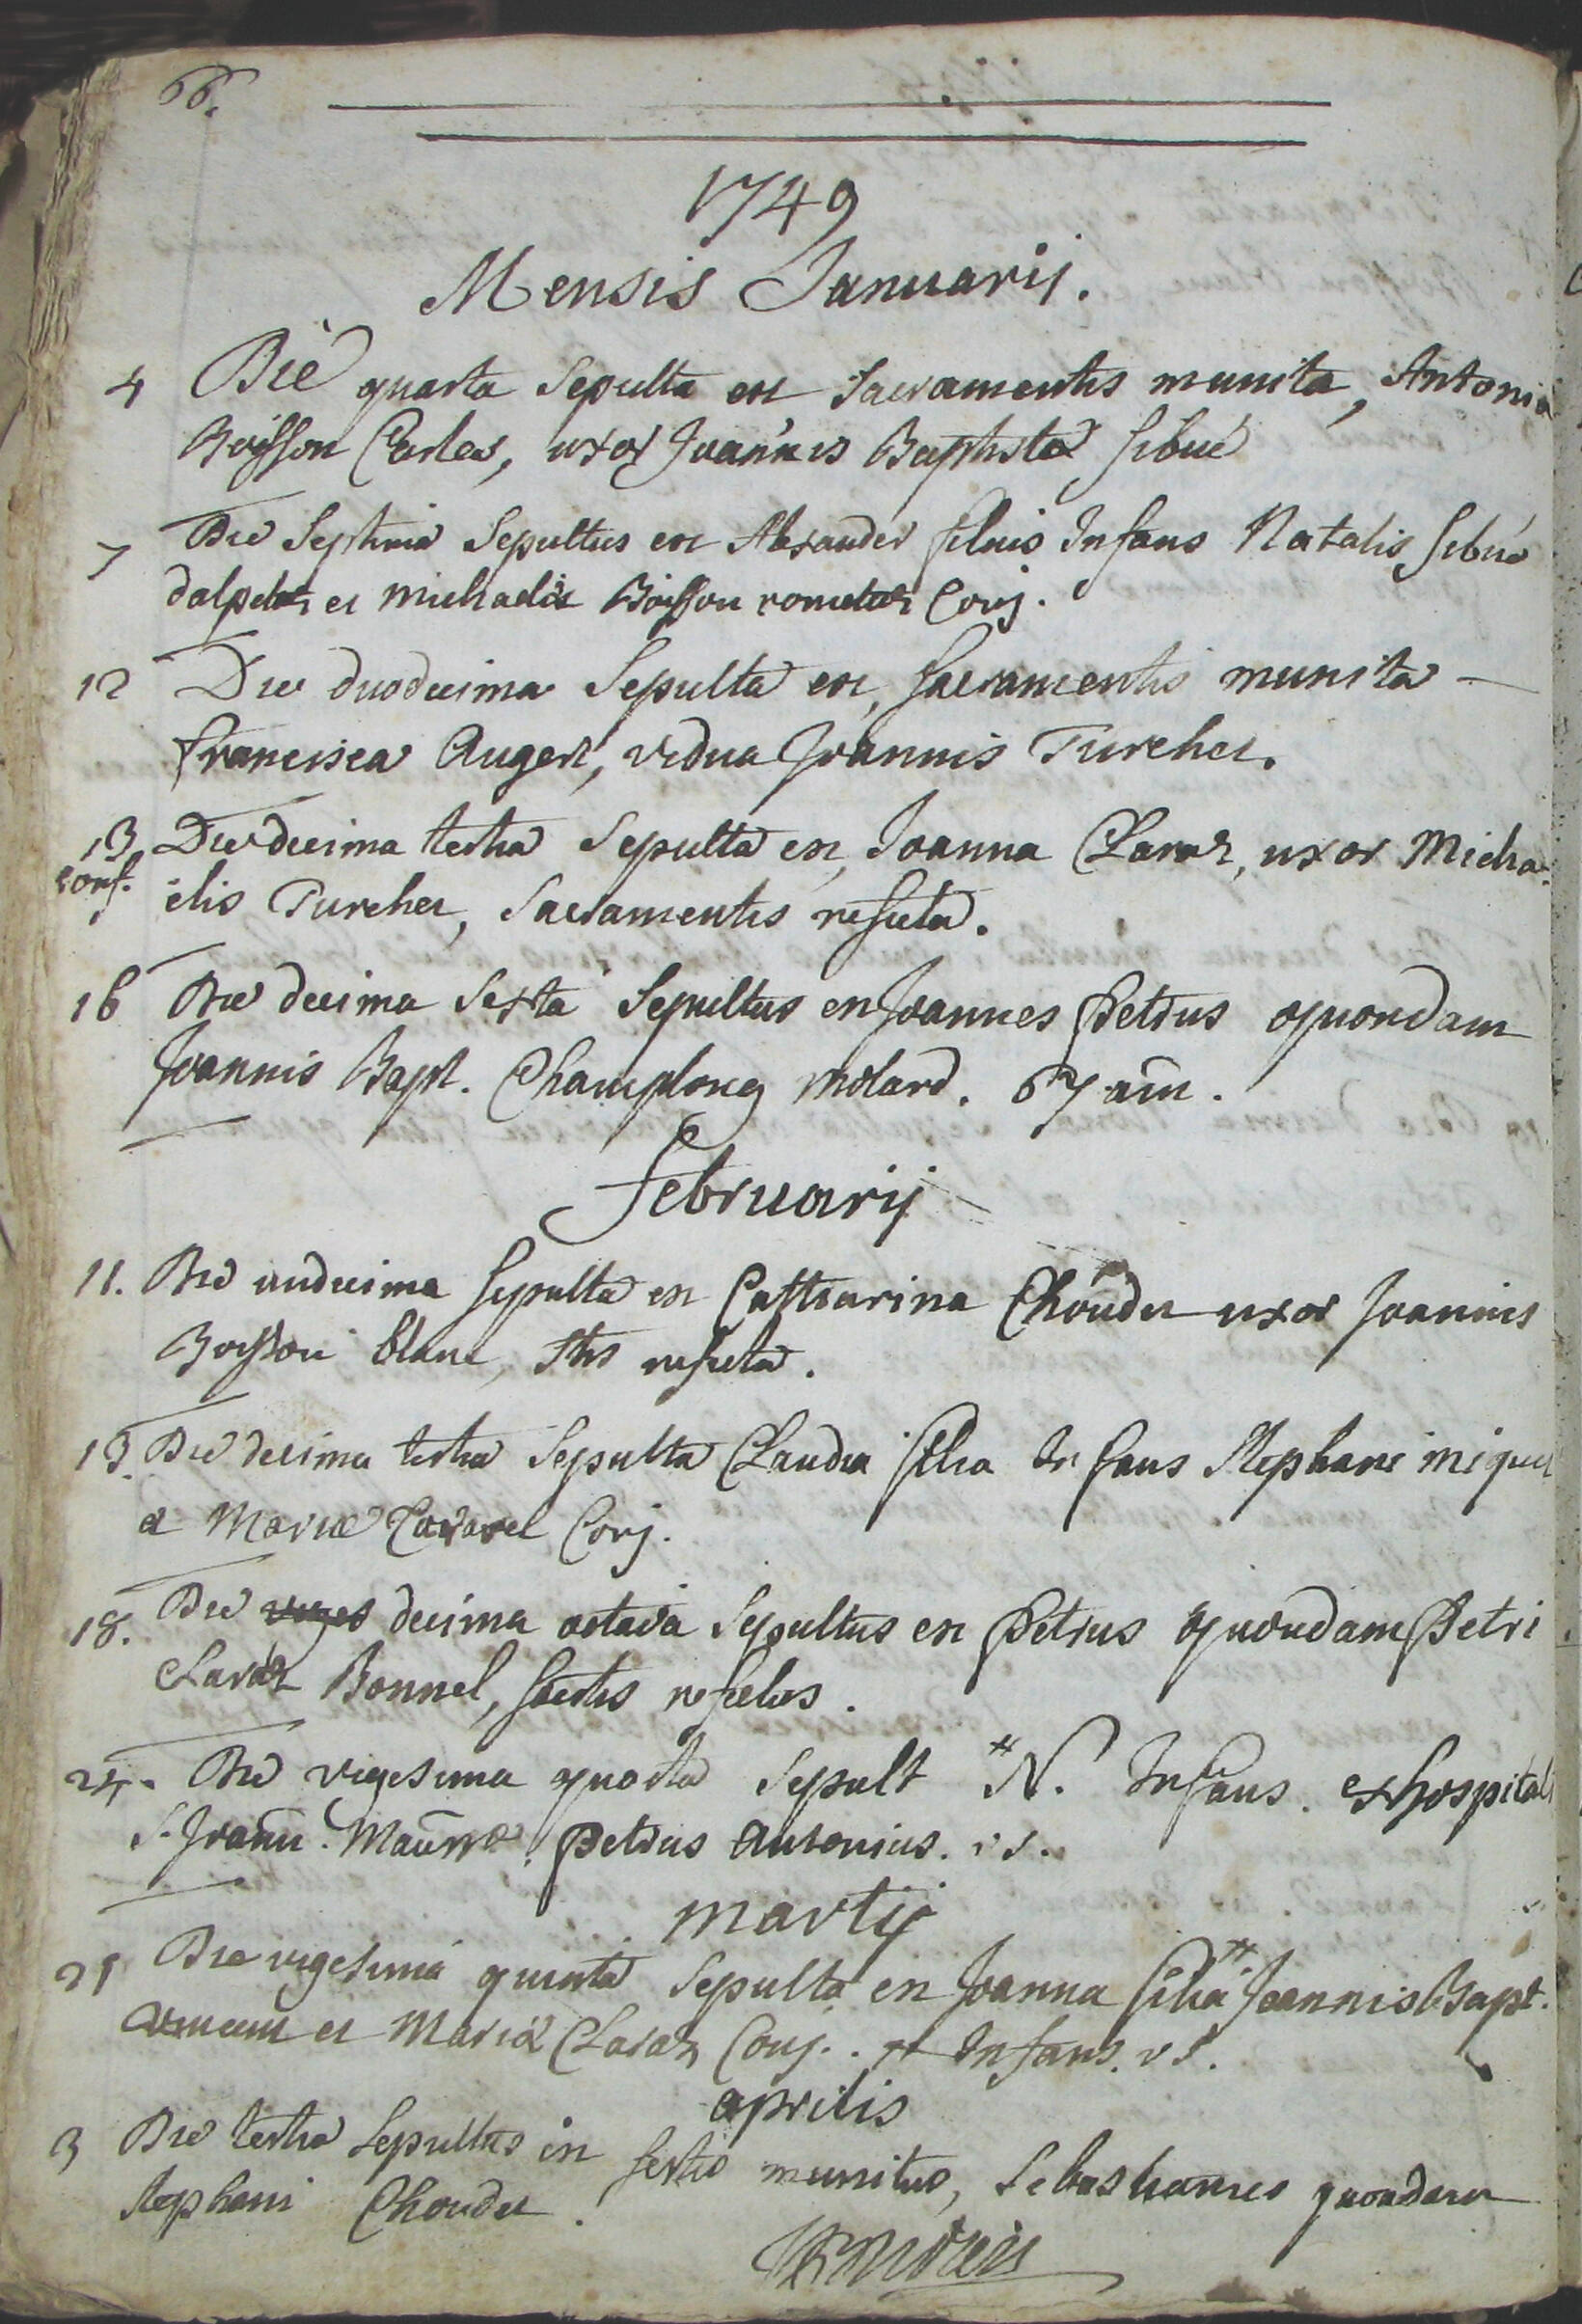 66.
1749
Mensis Januarij.
4 Die quarta Sepulta est Sacramentis munita, Antonia
Boisson Carles, uxor Joannis Baptistæ Sibué
7 Die Septima Sepultus est Alexander filius Infans Natalis Sibué
dalpelaz et michaelis Boisson Conj.
12 Die duodecima Sepulta est, Sacramentis munita
francisca Augert, vidua Joannis Turchet.
13 Die decima tertia Sepulta est, Joanna Claraz, uxor Micha-
conf. elis Turchet, Sacramentis refecta.
16 Die decima Sexta Sepultus est Joannes Petrus quondam
Joannis Bapt. Champlong molard. 67 añ.
februarij
11. Die undecima Sepulta est Catharina Choudet uxor Joannis
Boisson blanc, Stis refecta.
13. Die decima tertia Sepulta Claudia filia Infans Stephani miquet
et Mariæ Conj.
18. Die decima octava Sepultus est Petrus quondam Petri
Claraz Bonnel, refectus.
24. Die vigesima quarta Sepult N. Infans. ex hospitali
S. Joañ. Petrus Antonius.
martij
Die vigesima quinta Sepulta est Joanna filia Joannis Bapt.
et Mariæ Claraz Conj. Infans.
aprilis
3 Die tertia Sepultus est munitus, Sebastianus quondam
Stephani Choudet.